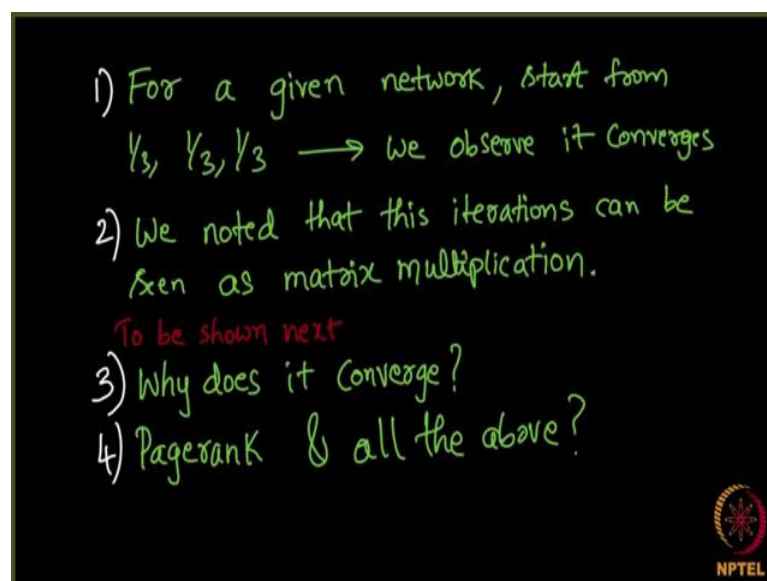 1) For a given network, start from
1/3, 1/3, 1/3 → we observe it Converges
2) We noted that this iterations can be
seen as matrix multiplication.
To be shown next
3) Why does it Converge?
4) Pagerank & all the above?
NPTEL